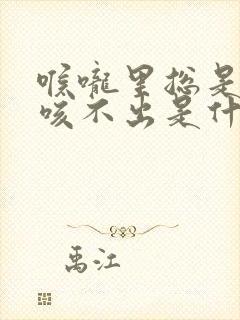 喉咙里总是
咳不出是什
禹江